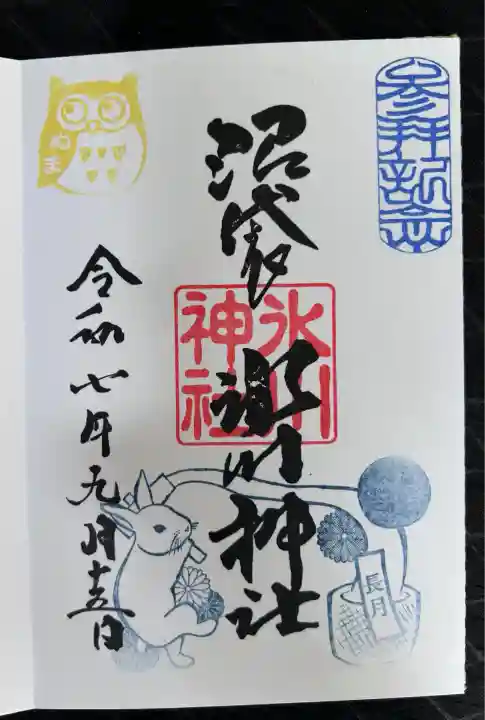 参拝記念
沼袋氷川神社
氷川
神社
ぬま
令和七年九月十五日
長月